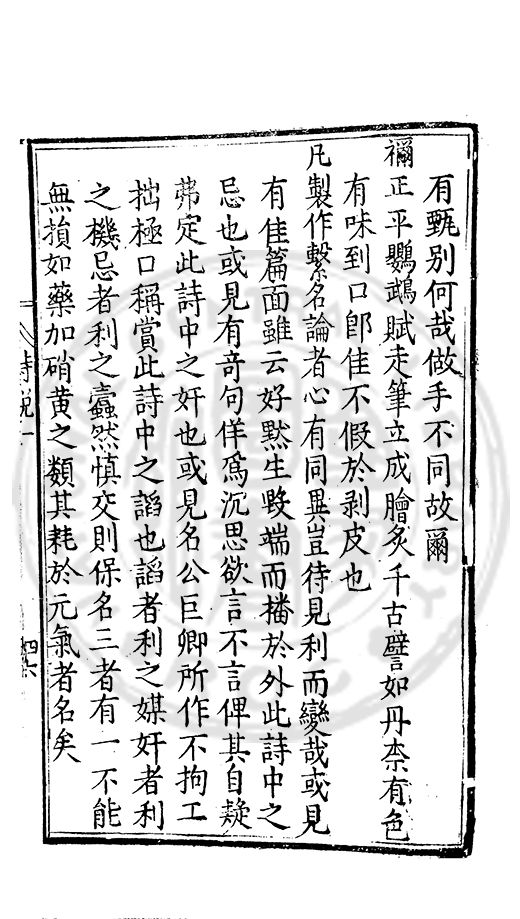 有甄別何哉做手不同故爾
禰正平鸚鵡賦走筆立成膾炙千古譬如丹柰有色
有味到口卽佳不假於剥皮也
凡製作繫名論者心有同異豈待見利而變哉或見
有佳篇面雖云好默生毁端而播於外此詩中之
忌也或見有竒句佯爲沉思欲言不言俾其自疑
弗定此詩中之奸也或見名公巨卿所作不拘工
拙極口稱賞此詩中之謟也謟者利之媒奸者利
之機忌者利之蠹然慎交則保名三者有一不能
無損如藥加硝黄之類其耗於元氣者名矣
詩說一
四六